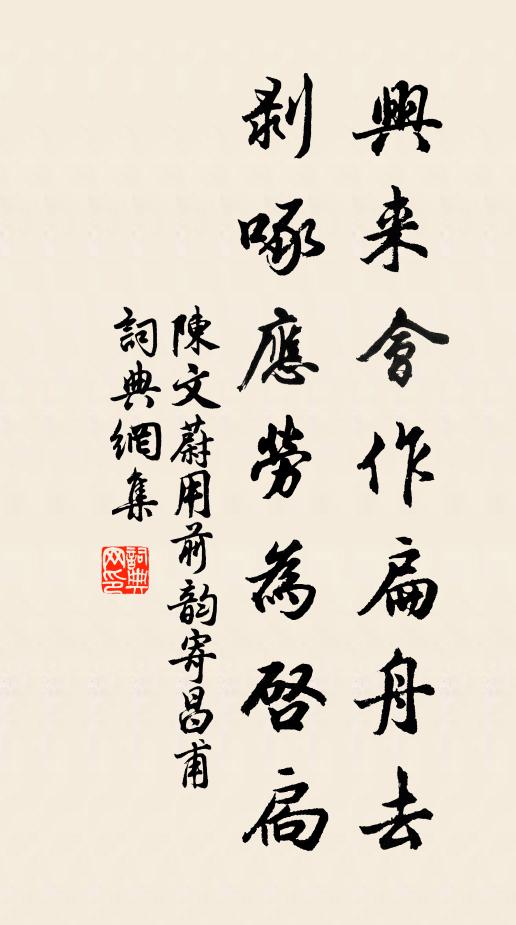 興来會作扁舟去
剥啄應勞為啓扃
陳文蔚用前韵寄昌甫
詞典網集
詞典网印